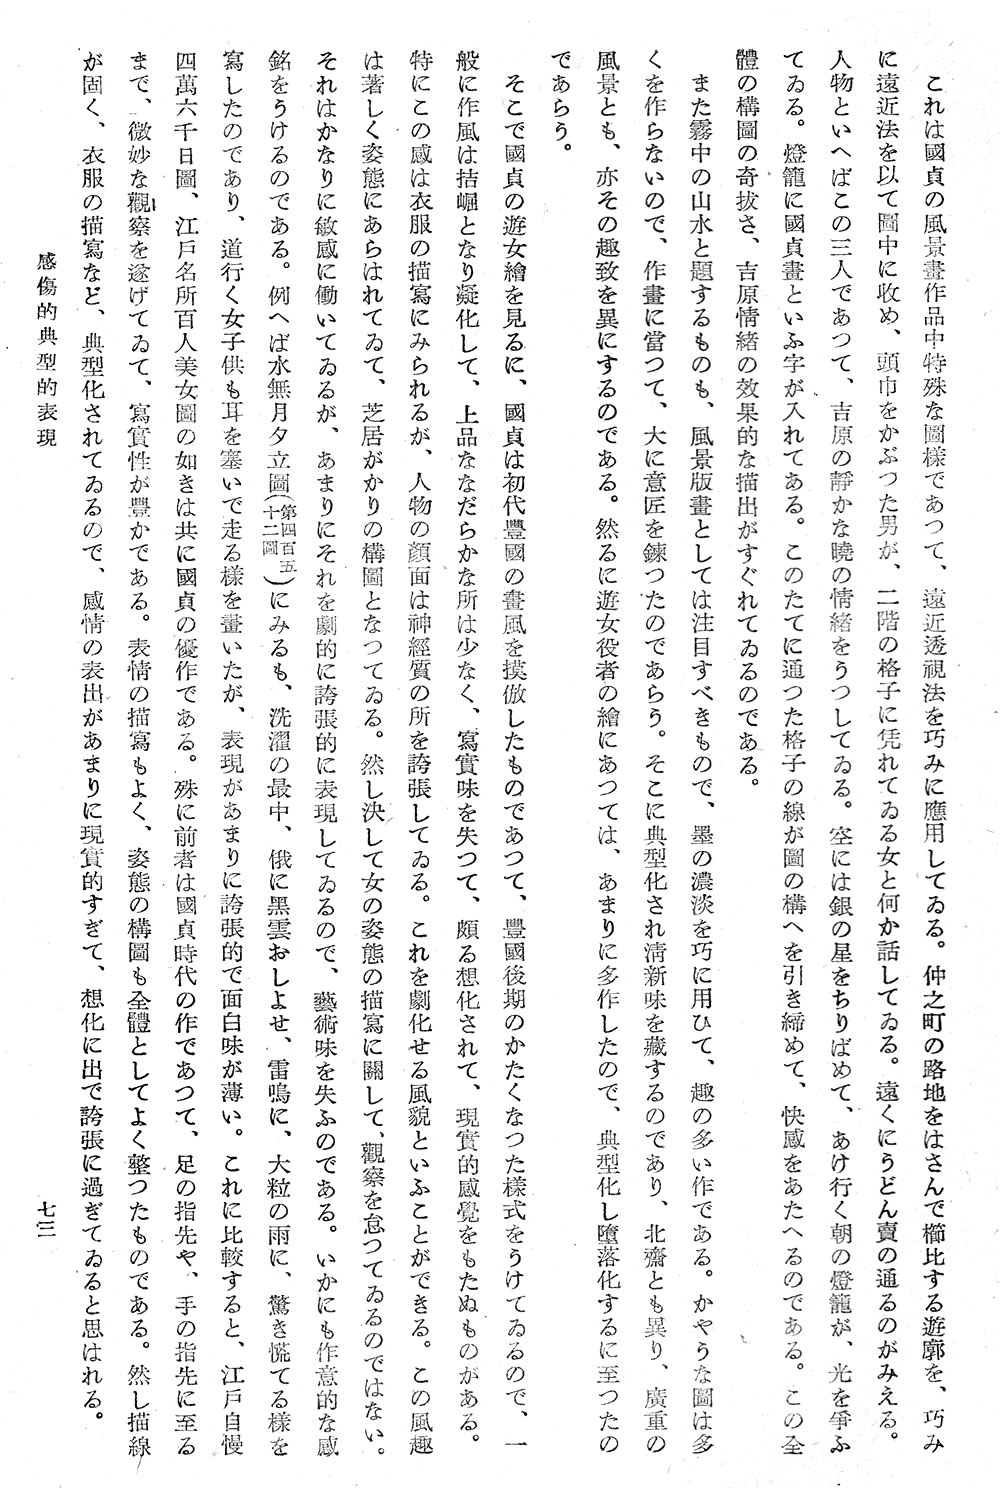 これは國貞の風景畫作品中特殊な圖樣であつて、遠近透視法を巧みに應用してゐる。仲之町の路地をはさんで櫛比する遊廓を、巧み
に遠近法を以て圖中に收め、頭巾をかぶつた男が、二階の格子に凭れてゐる女と何か話してゐる。遠くにうどん賣の通るのがみえる。
人物といへばこの三人であつて、吉原の靜かな曉の情緒をうつしてゐる。空には銀の星をちりばめて、あけ行く朝の燈籠が、光を爭ふ
てゐる。燈籠に國貞畫といふ字が入れてある。このたてに通つた格子の線が圖の構へを引き締めて、快感をあたへるのである。この全
體の構圖の奇拔さ、吉原情緒の效果的な描出がすぐれてゐるのである。
また霧中の山水と題するものも、風景版畫としては注目すべきもので、墨の濃淡を巧に用ひて、趣の多い作である。かやうな圖は多
くを作らないので、作畫に當つて、大に意匠を鍊つたのであらう。そこに典型化され淸新味を藏するのであり、北齋とも異り、廣重の
風景とも、亦その趣致を異にするのである。然るに遊女役者の繪にあつては、あまりに多作したので、典型化し墮落化するに至つたの
であらう。
そこで國貞の遊女繪を見るに、國貞は初代豐國の畫風を摸倣したものであつて、豐國後期のかたくなつた樣式をうけてゐるので、一
般に作風は拮崛となり凝化して、上品ななだらかな所は少なく、寫實味を失つて、頗る想化されて、現實的感覺をもたぬものがある。
特にこの感は衣服の描寫にみられるが、人物の顏面は神經質の所を誇張してゐる。これを劇化せる風貌といふことができる。この風趣
は著しく姿態にあらはれてゐて、芝居がかりの構圖となつてゐる。然し決して女の姿態の描寫に關して、觀察を怠つてゐるのではない。
それはかなりに敏感に働いてゐるが、あまりにそれを劇的に誇張的に表現してゐるので、藝術味を失ふのである。いかにも作意的な感
銘をうけるのである。例へば水無月夕立圖(第四百五十二圖)にみるも、洗濯の最中、俄に黑雲おしよせ、雷鳴に、大粒の雨に、驚き慌てる樣を
寫したのであり、道行く女子供も耳を塞いで走る樣を畫いたが、表現があまりに誇張的で面白味が薄い。これに比較すると、江戶自慢
四萬六千日圖、江戶名所百人美女圖の如きは共に國貞の優作である。殊に前者は國貞時代の作であつて、足の指先や、手の指先に至る
まで、微妙な觀察を遂げてゐて、寫實性が豐かである。表情の描寫もよく、姿態の構圖も全體としてよく整つたものである。然し描線
が固く、衣服の描寫など、典型化されてゐるので、感情の表出があまりに現實的すぎて、想化に出で誇張に過ぎてゐると思はれる。
感傷的典型的表現
七三